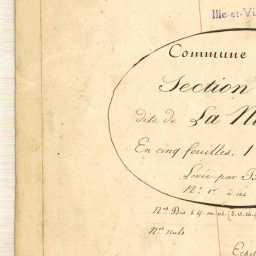 Ille-et-Vi
Commune
Section
dite de La
En cinq feuilles. 1
Levée par
Nos
Nos nuls
Eche